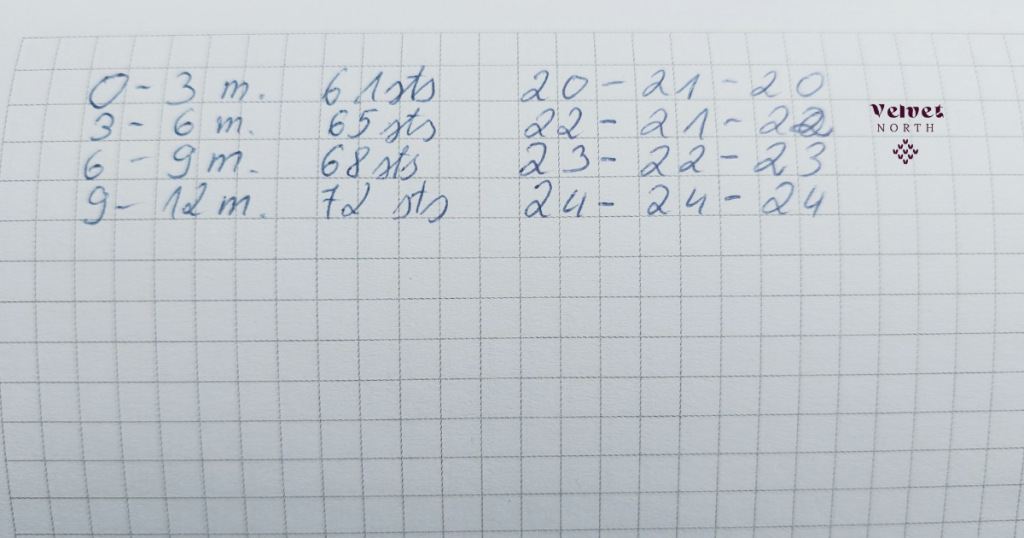 0 - 3 m. 61 sts 20 - 21 - 20
3 - 6 m. 65 sts 22 - 21 - 22
6 - 9 m. 68 sts 23 - 22 - 23
9 - 12 m. 72 sts 24 - 24 - 24
Velvet
NORTH